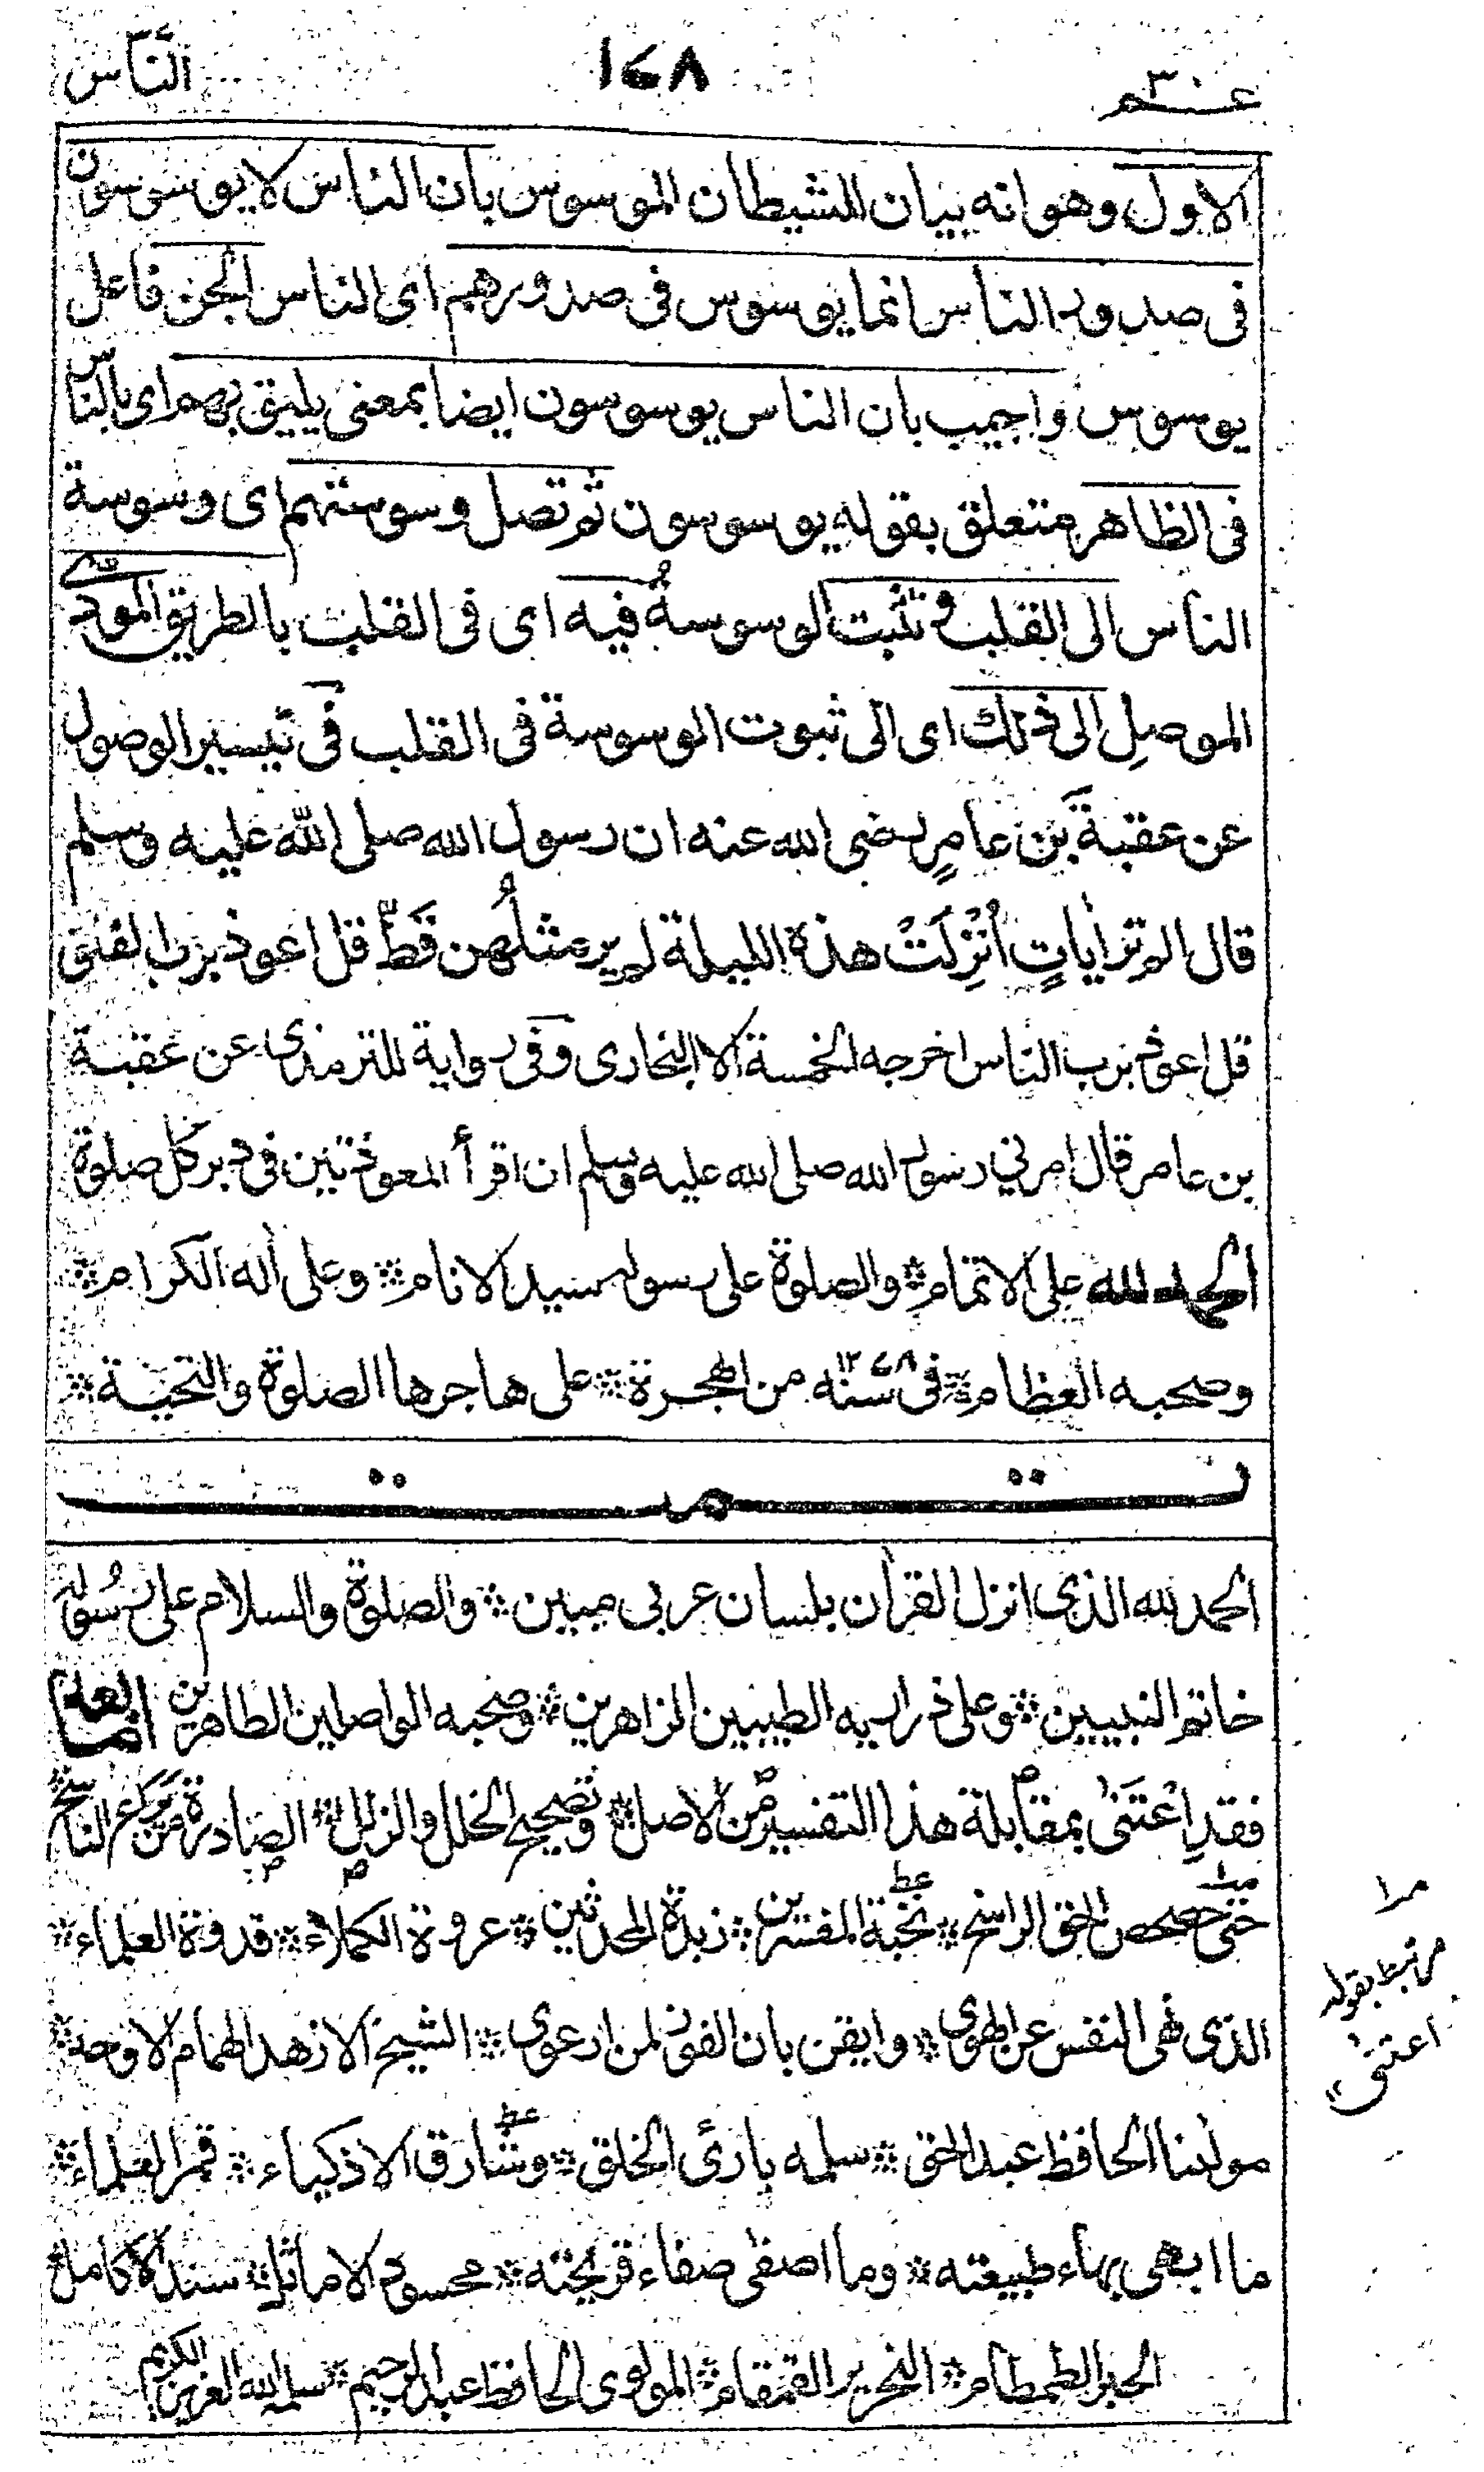 عم ٣٠ ١٤٨ الناس
الاول وهو انه بيان الشيطان الموسوس بان الناس لا يوسوسون
فى صدور الناس انما يوسوس فى صدورهم اى الناس الجن فاعل
يوسوس واجيب بان الناس يوسوسون ايضا بمعنى يليق بهم اى بالناس
فى الظاهر متعلق بقوله يوسوسون ثم تصل وسوستهم اى وسوسة
الناس الى القلب وتثبت الوسوسةُ فيه اى فى القلب بالطريق المودى
الموصلِ الى ذلك اى الى ثبوت الوسوسة فى القلب فى تيسير الوصول
عن عقبة بن عامرٍ رضى الله عنه ان رسول الله صلى الله عليه وسلم
قال الم تر اياتٍ اُنْزِلَتْ هذه الليلة لم ير مثلُهن قَطّ قل اعوذ برب الفلق
قل اعوذ برب الناس اخرجه الخمسة الا البخارى وفى رواية للترمذى عن عقبة
بن عامر قال امرني رسول الله صلى الله عليه وسلم ان اقرأ المعوذتين فى دبر كل صلوة
الحمد لله على الاتمام * والصلوة على رسوله سيد الانام * وعلى اله الكرام *
وصحبه العظام * فى سنه ١٢٧٨ من الهجرة * على هاجرها الصلوة والتحية *
تمت
الحمد لله الذى انزل القران بلسان عربى مبين * والصلوة والسلام على رسُوله
خاتم النبيين * وعلى ذراريه الطيبين الزاهرين * وصحبه الواصلين الطاهرين اما بعد
فقدِ اعْتَنىٰ بمقابلة هذا التفسير من الاصل * وتصحيح الخلل والزلل * الصادرة من الناسخ *
حتى حصحص الحق الراسخ * نخبة المفسرين * زبدة المحدثين * عروة الكملاء * قدوة العلماء *
الذى نهى النفس عن الهوى * وايقن بان الفوز لمن ارعوى * الشيخ الازهد الهمام الاوحد *
مولنا الحافظ عبد الحق * سلمه بارئ الخلق * وشارق الاذكياء * قمر العلماء *
ما ابهى بهاء طبيعته * وما اصفى صفاء قريحته * محسود الاماثل * سند الاكامل
الحبر الطمطام * النحرير القمقام * المولوى الحافظ عبد الرحيم * سلمه الله العزيز الكريم
مرتبط بقوله
اعتنى